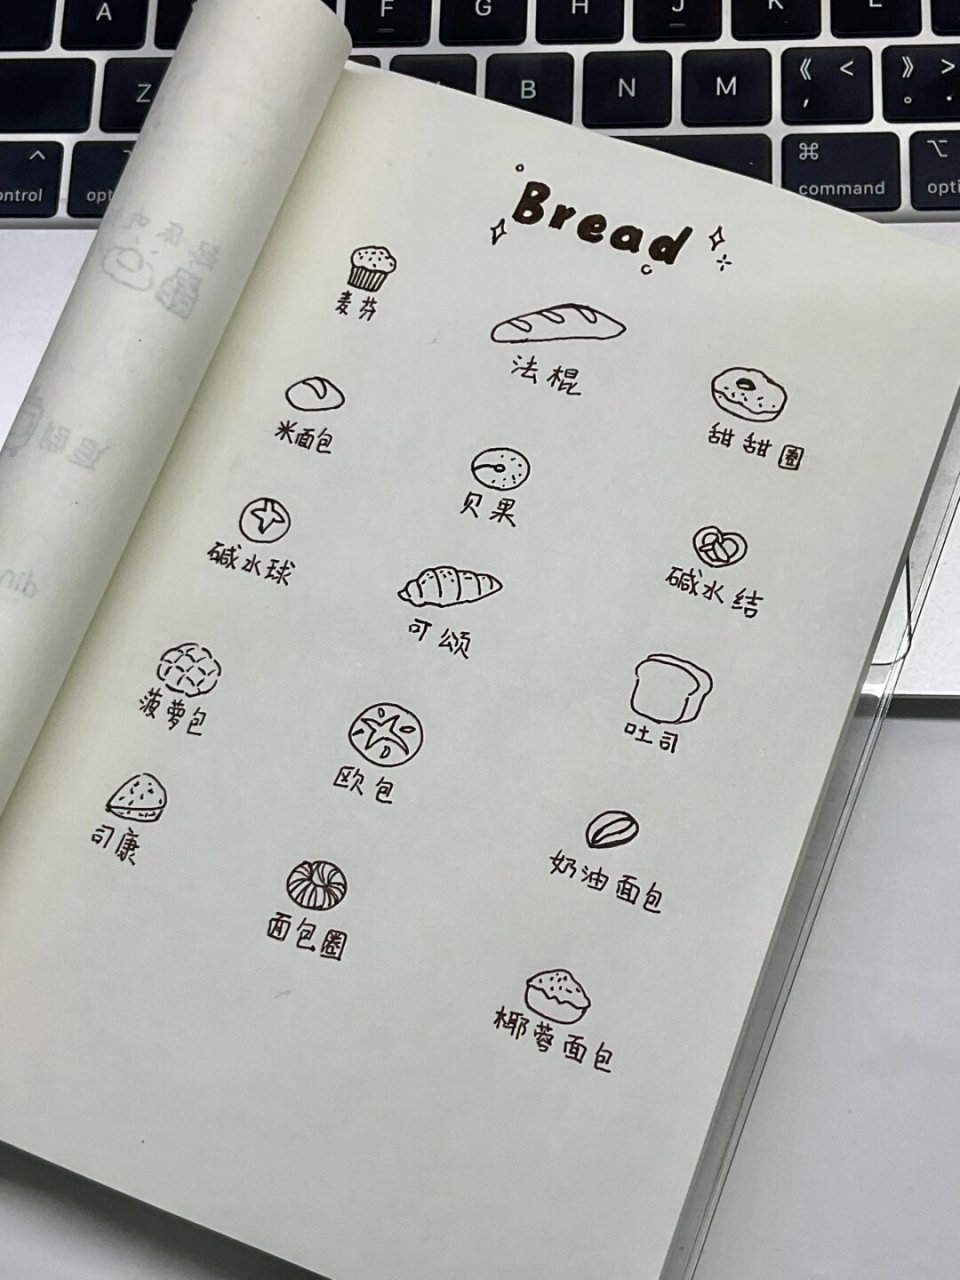 A
F
G
H
J
K
L
Z
B
N
M
《 <
,
》 >
。 .
^
control
opt
⌘
command
⌥
opti
Bread
麦芬
法棍
甜甜圈
米面包
贝果
碱水球
碱水结
可颂
菠萝包
吐司
欧包
司康
奶油面包
面包圈
椰蓉面包